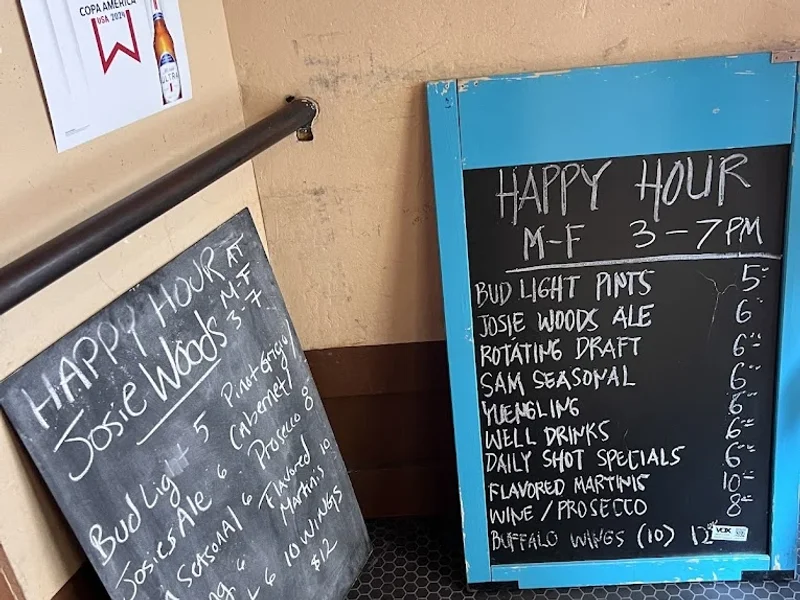 COPA AMÉRICA
USA 2024
ULTRA
HAPPY HOUR AT
Josie Woods M-F
3-7
Bud Light 5
Josie's Ale 6
Seasonal 6
6
6
Pinot Grigio/
Cabernet/
Prosecco 8
Flavored
Martinis 10
10 WINGS
$12
HAPPY HOUR
M-F 3-7PM
BUD LIGHT PINTS 5
JOSIE WOODS ALE 6
ROTATING DRAFT 6
SAM SEASONAL 6
YUENGLING 6
WELL DRINKS 6
DAILY SHOT SPECIALS 6
FLAVORED MARTINIS 10
WINE / PROSECCO 8
BUFFALO WINGS (10) 12
VOX